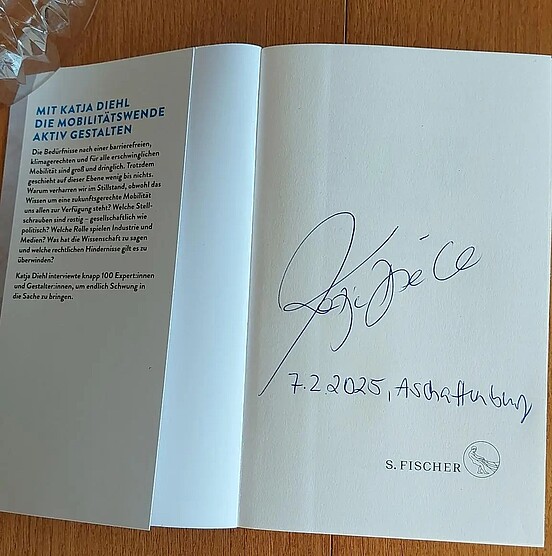 MIT KATJA DIEHL
DIE MOBILITÄTSWENDE
AKTIV GESTALTEN
Die Bedürfnisse nach einer barrierefreien,
klimagerechten und für alle erschwinglichen
Mobilität sind groß und dringlich. Trotzdem
geschieht auf dieser Ebene wenig bis nichts.
Warum verharren wir im Stillstand, obwohl das
Wissen um eine zukunftsgerechte Mobilität
uns allen zur Verfügung steht? Welche Stell-
schrauben sind rostig – gesellschaftlich wie
politisch? Welche Rolle spielen Industrie und
Medien? Was hat die Wissenschaft zu sagen
und welche rechtlichen Hindernisse gilt es zu
überwinden?
Katja Diehl interviewte knapp 100 Expert:innen
und Gestalter:innen, um endlich Schwung in
die Sache zu bringen.
Katja Diehl
7.2.2025, Aschaffenburg
S. FISCHER